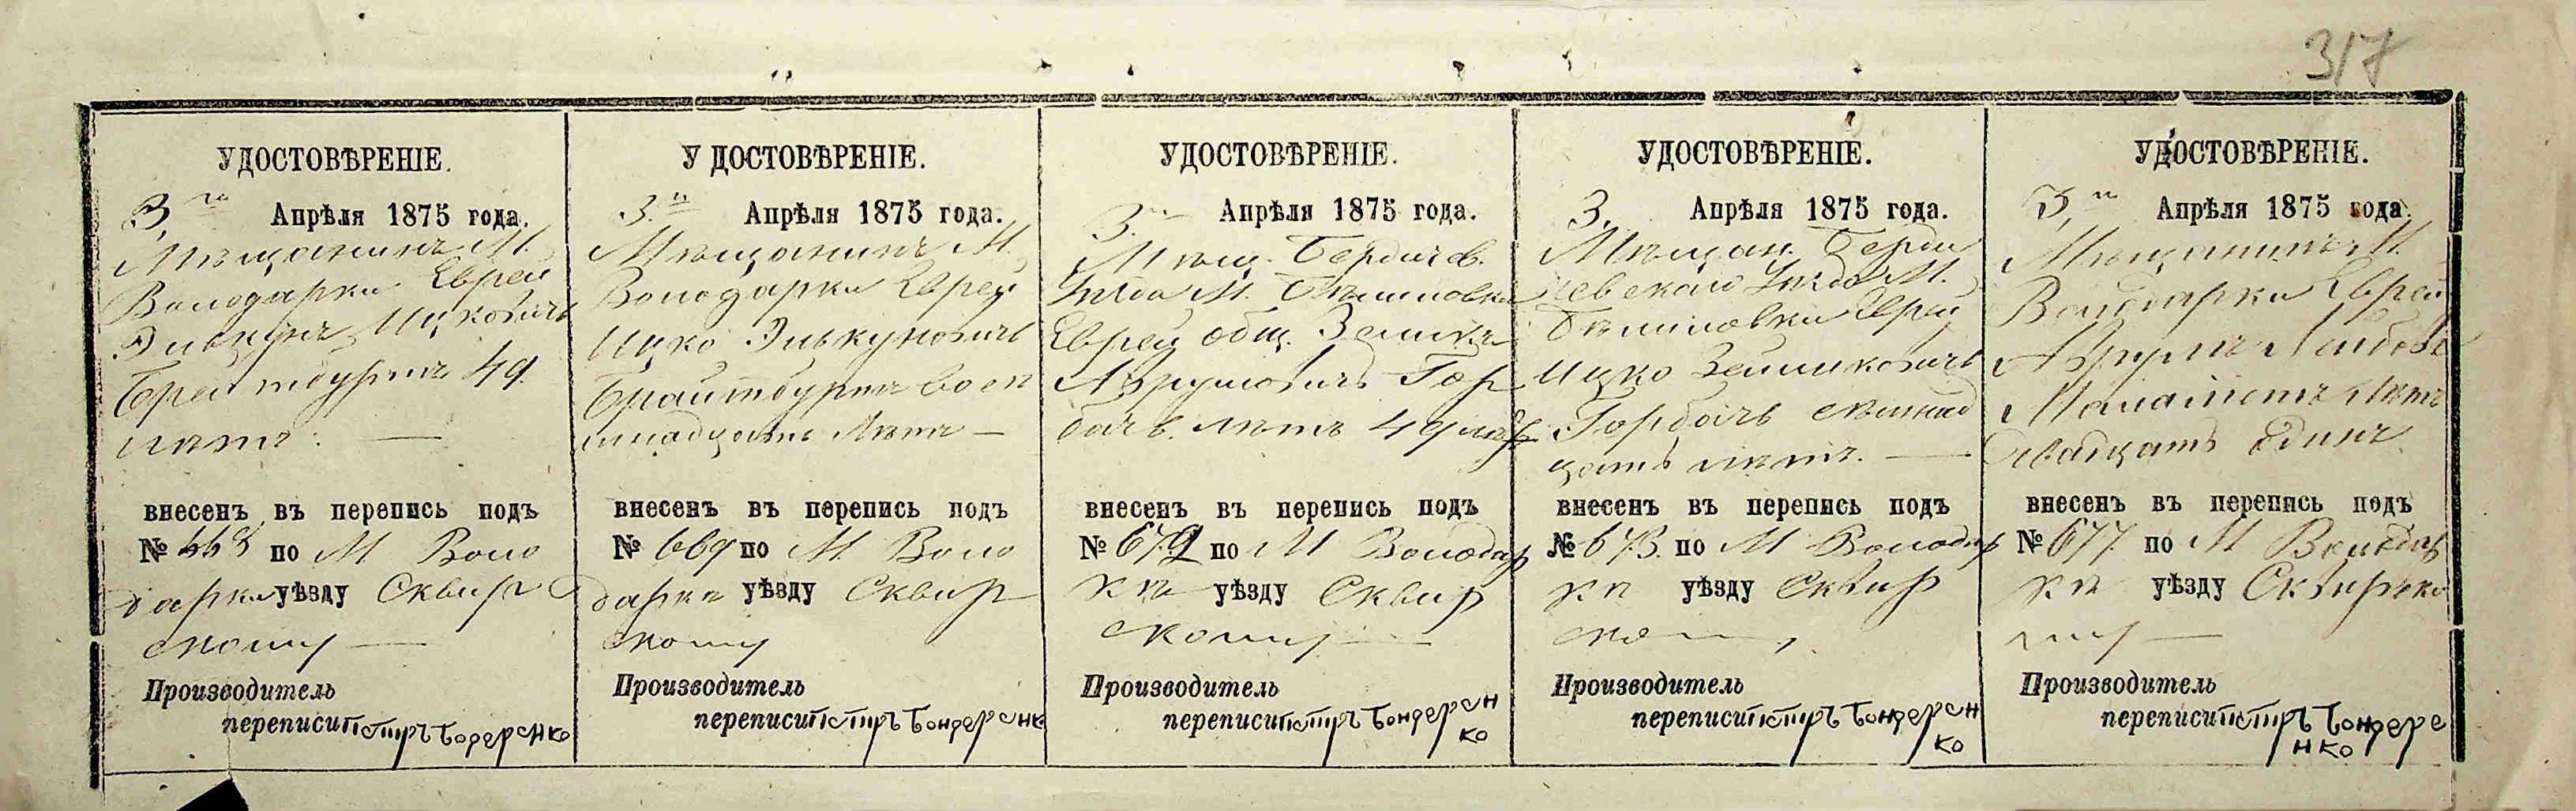 317
УДОСТОВѢРЕНІЕ.
3.го Апрѣля 1875 года.
Мѣщанинъ М.
Володарки Еврей
Элькунъ Ицковичъ
Брейтбурдъ 49.
лѣтъ. —
внесенъ въ перепись подъ
№ 668 по М Воло
дарки уѣзду Сквир
скому —
Производитель
переписи Петръ Бодеренко
У ДОСТОВѢРЕНІЕ.
3.го Апрѣля 1875 года.
Мѣщанинъ М.
Володарки Еврей
Ицко Элькуновичъ
Брайтбурдъ восем
надцать Лѣтъ —
внесенъ въ перепись подъ
№ 669 по М Воло
дарки уѣзду Сквир
скому
Производитель
переписи Петръ Бондеренко
УДОСТОВѢРЕНІЕ.
3. Апрѣля 1875 года.
Мѣщ. Бердичев.
Уѣзда М. Бѣлиловки
Еврей общ. Зелик
Аврумовичъ Гор
бачъ. лѣтъ 49
внесенъ въ перепись подъ
№ 672 по М Володар
кѣ уѣзду Сквир
скому —
Производитель
переписи Петръ Бондерен
ко
УДОСТОВѢРЕНІЕ.
3. Апрѣля 1875 года.
Мѣщан. Берди
чевскаго Уѣзда М.
Бѣлиловки Еврей
Ицко Зеликовичъ
Горбачъ семнад
цать лѣтъ. —
внесенъ въ перепись подъ
№ 673. по М Володар
кѣ уѣзду Сквир
ском
Производитель
переписи Петръ Бондерен
ко
УДОСТОВѢРЕНІЕ.
3.го Апрѣля 1875 года.
Мѣщанинъ М.
Володарки Еврей
Аврумъ Лейбов
Лѣтъ
двадцать одинъ
внесенъ въ перепись подъ
№ 677. по М Володар
кѣ уѣзду Сквирско
му —
Производитель
переписи Петръ Бондере
нко